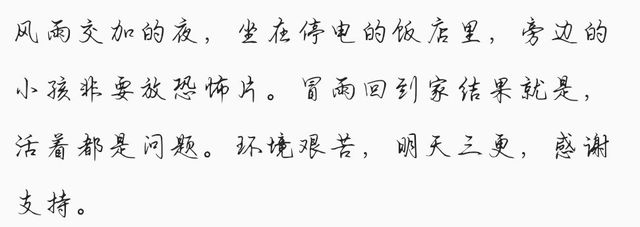 风雨交加的夜，坐在停电的饭店里，旁边的
小孩非要放恐怖片。冒雨回到家结果就是，
活着都是问题。环境艰苦，明天三更，感谢
支持。